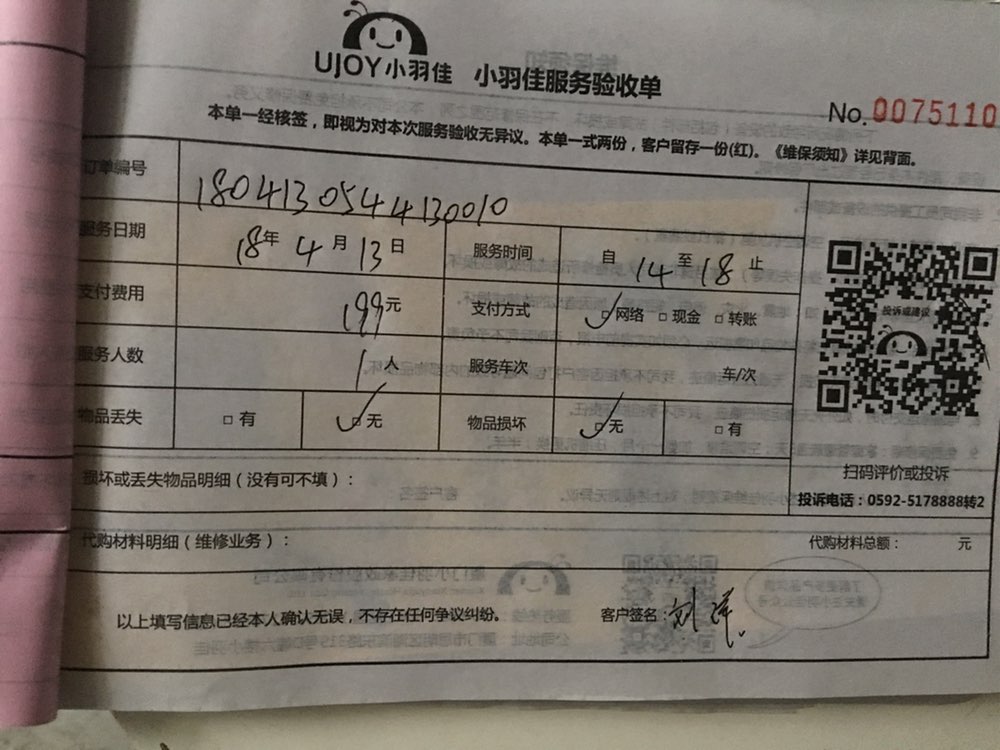 UJOY小羽佳 小羽佳服务验收单
No.0075110
本单一经核签，即视为对本次服务验收无异议。本单一式两份，客户留存一份(红)。《维保须知》详见背面。
订单编号 1804130544130010
服务日期 18年 4月 13日 服务时间 自 14 至 18 止
支付费用 199元 支付方式 ☑网络 □现金 □转账
投诉或建议
服务人数 1人 服务车次 车/次
物品丢失 □有 ☑无 物品损坏 ☑无 □有
扫码评价或投诉
损坏或丢失物品明细（没有可不填）：
投诉电话：0592-5178888转2
代购材料明细（维修业务）： 代购材料总额： 元
以上填写信息已经本人确认无误，不存在任何争议纠纷。 客户签名：刘洋